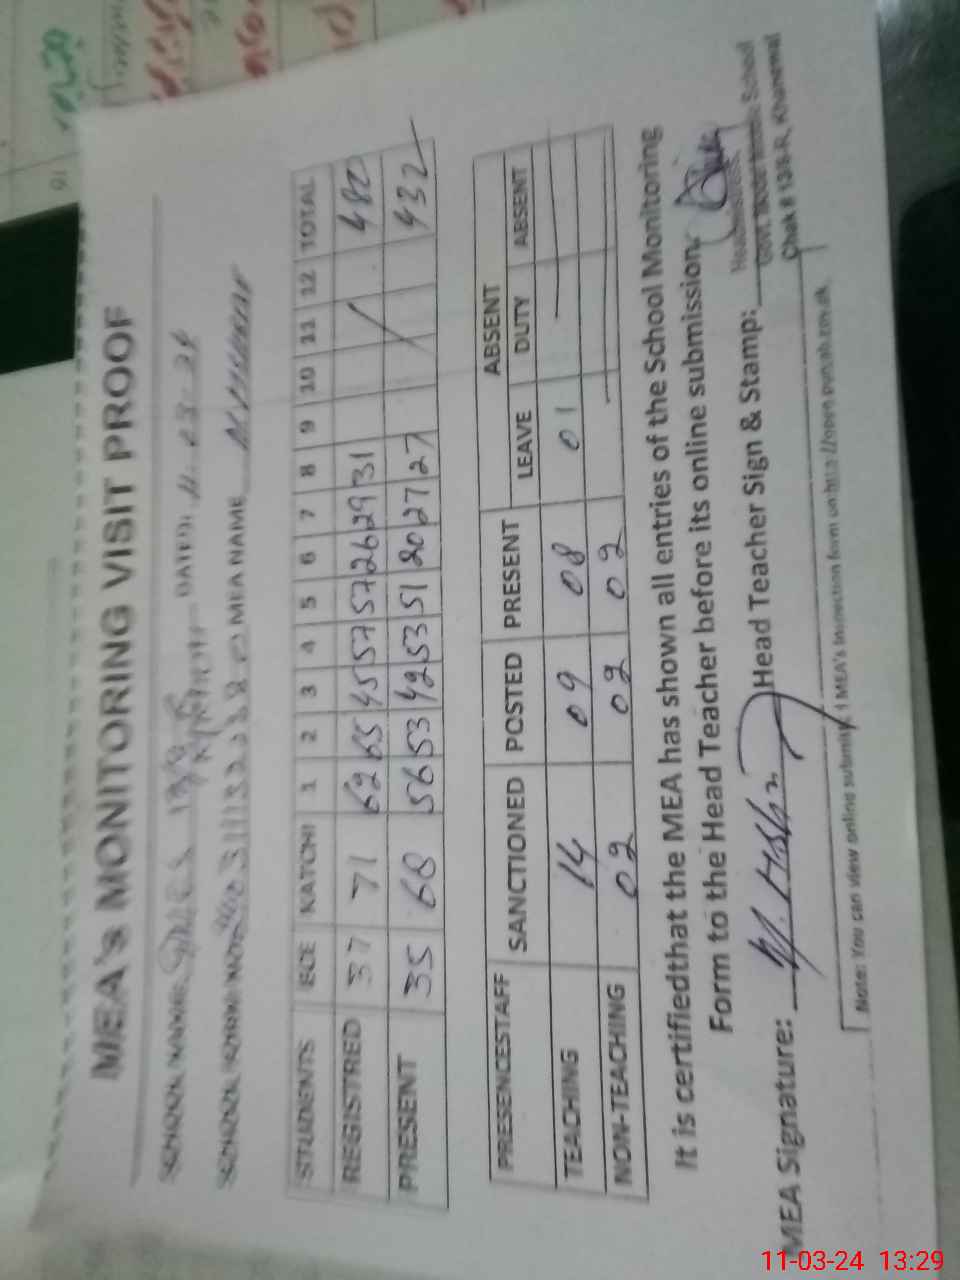 MEA's MONITORING VISIT PROOF
SCHOOL NAME DATED: 11-03-24
MEA NAME
STUDENTS ECE KATCHI 1 2 3 4 5 6 7 8 9 10 11 12 TOTAL
REGISTRED 37 71 62 65 45 57 57 26 29 31 480
PRESENT 35 68 56 53 42 53 51 20 27 27 432
ABSENT
PRESENCESTAFF SANCTIONED POSTED PRESENT LEAVE DUTY ABSENT
TEACHING 14 09 08 01
NON-TEACHING 02 02 02
It is certifiedthat the MEA has shown all entries of the School Monitoring
Form to the Head Teacher before its online submission.
MEA Signature: Head Teacher Sign & Stamp:
Headmistress
School
Chak #
Khanewal
Note: You can view online submitted MEA's Inspection form on http://open.punjab.gov.pk
11-03-24 13:29